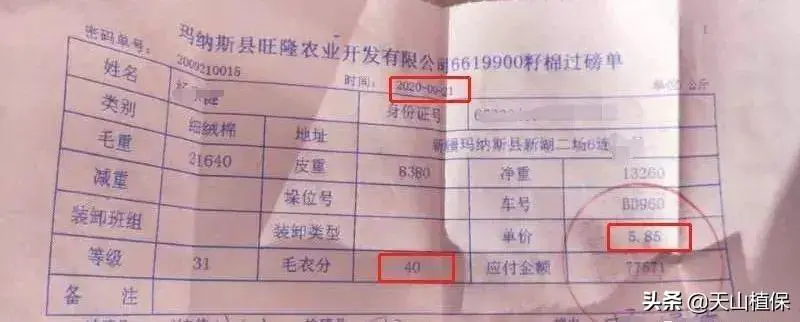 玛纳斯县旺隆农业开发有限公司6619900籽棉过磅单
密码单号: 2009210015 时间: 2020-09-21 单位 公斤
姓名 身份证号
类别 细绒棉 地址 新疆玛纳斯县新湖二场6连
毛重 21640 皮重 8380 净重 13260
减重 垛位号 车号 BD960
装卸班组 装卸类型 单价 5.85
等级 31 毛衣分 40 应付金额 77571
备注
头条 @天山植保